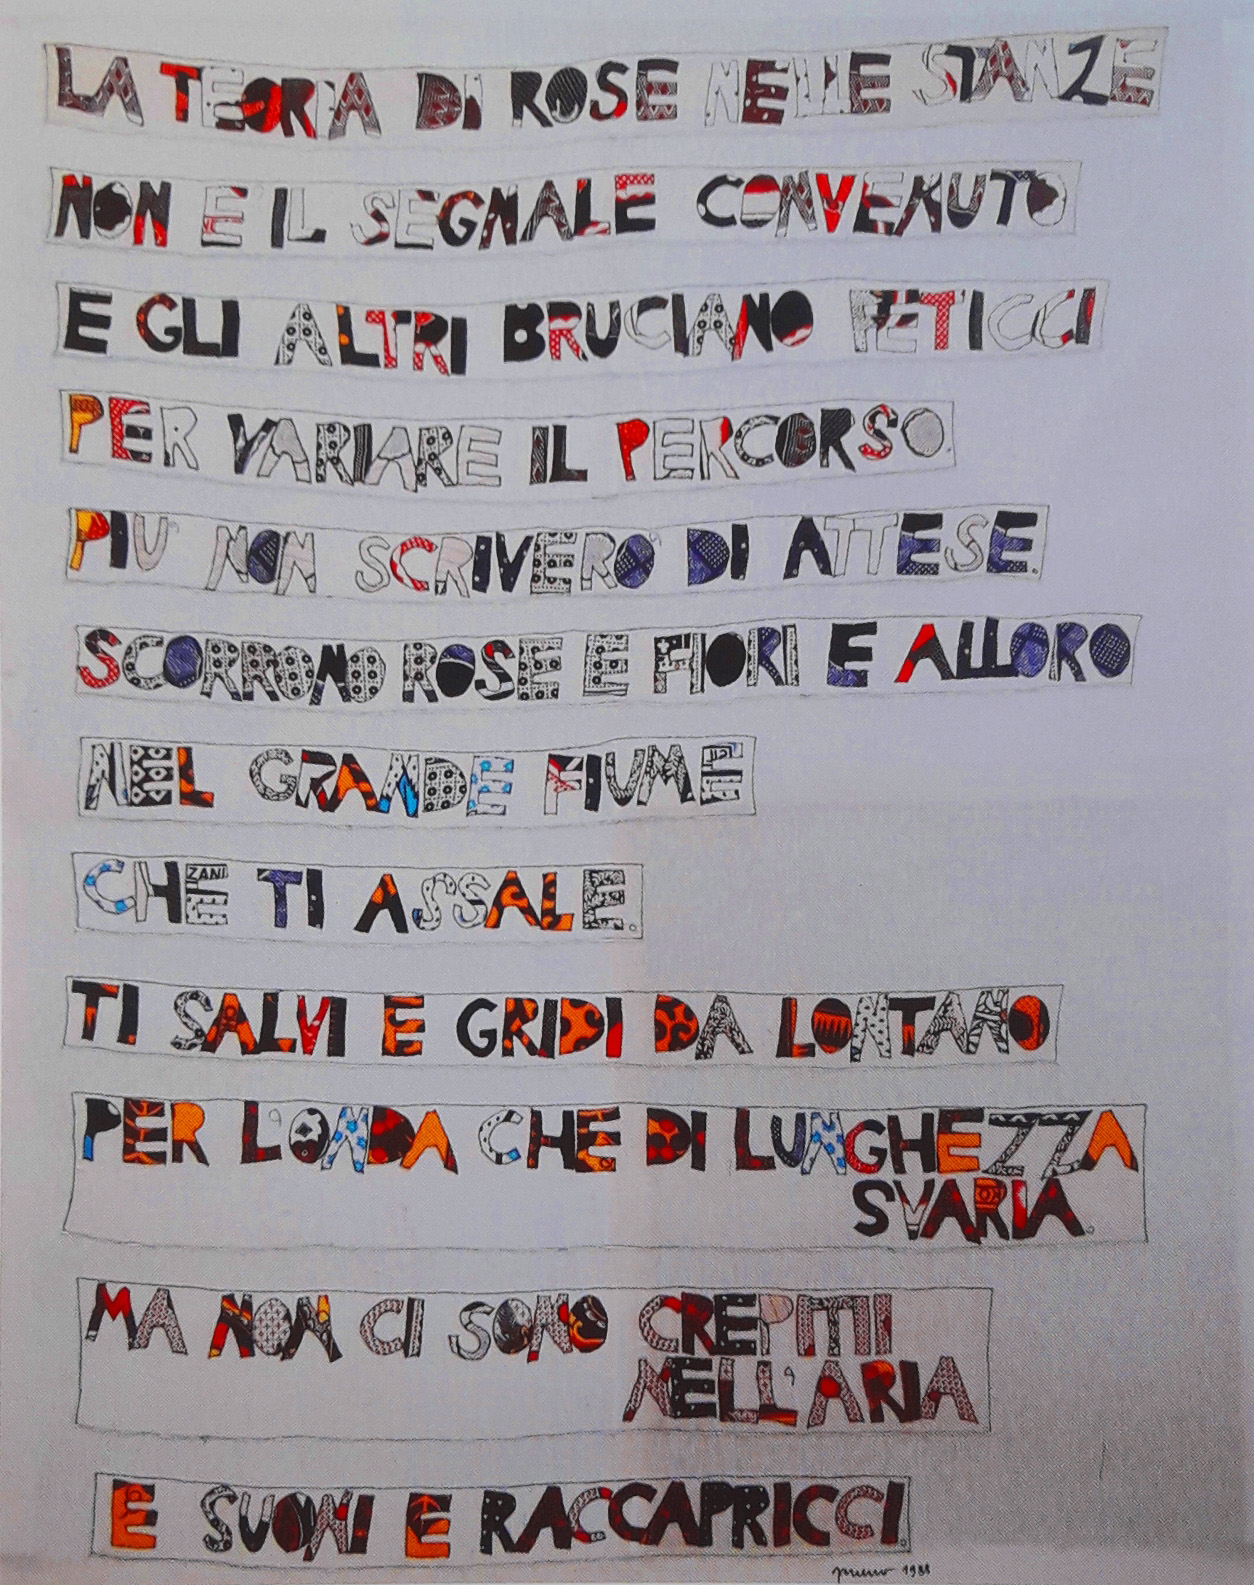 LA TEORIA DI ROSE NELLE STANZE
NON E' IL SEGNALE CONVENUTO
E GLI ALTRI BRUCIANO FETICCI
PER VARIARE IL PERCORSO.
PIU' NON SCRIVERO' DI ATTESE.
SCORRONO ROSE E FIORI E ALLORO
NEL GRANDE FIUME
CHE TI ASSALE.
TI SALVI E GRIDI DA LONTANO
PER L'ONDA CHE DI LUNGHEZZA
SVARIA.
MA NON CI SONO CREPITII
NELL'ARIA
E SUONI E RACCAPRICCI.
1988